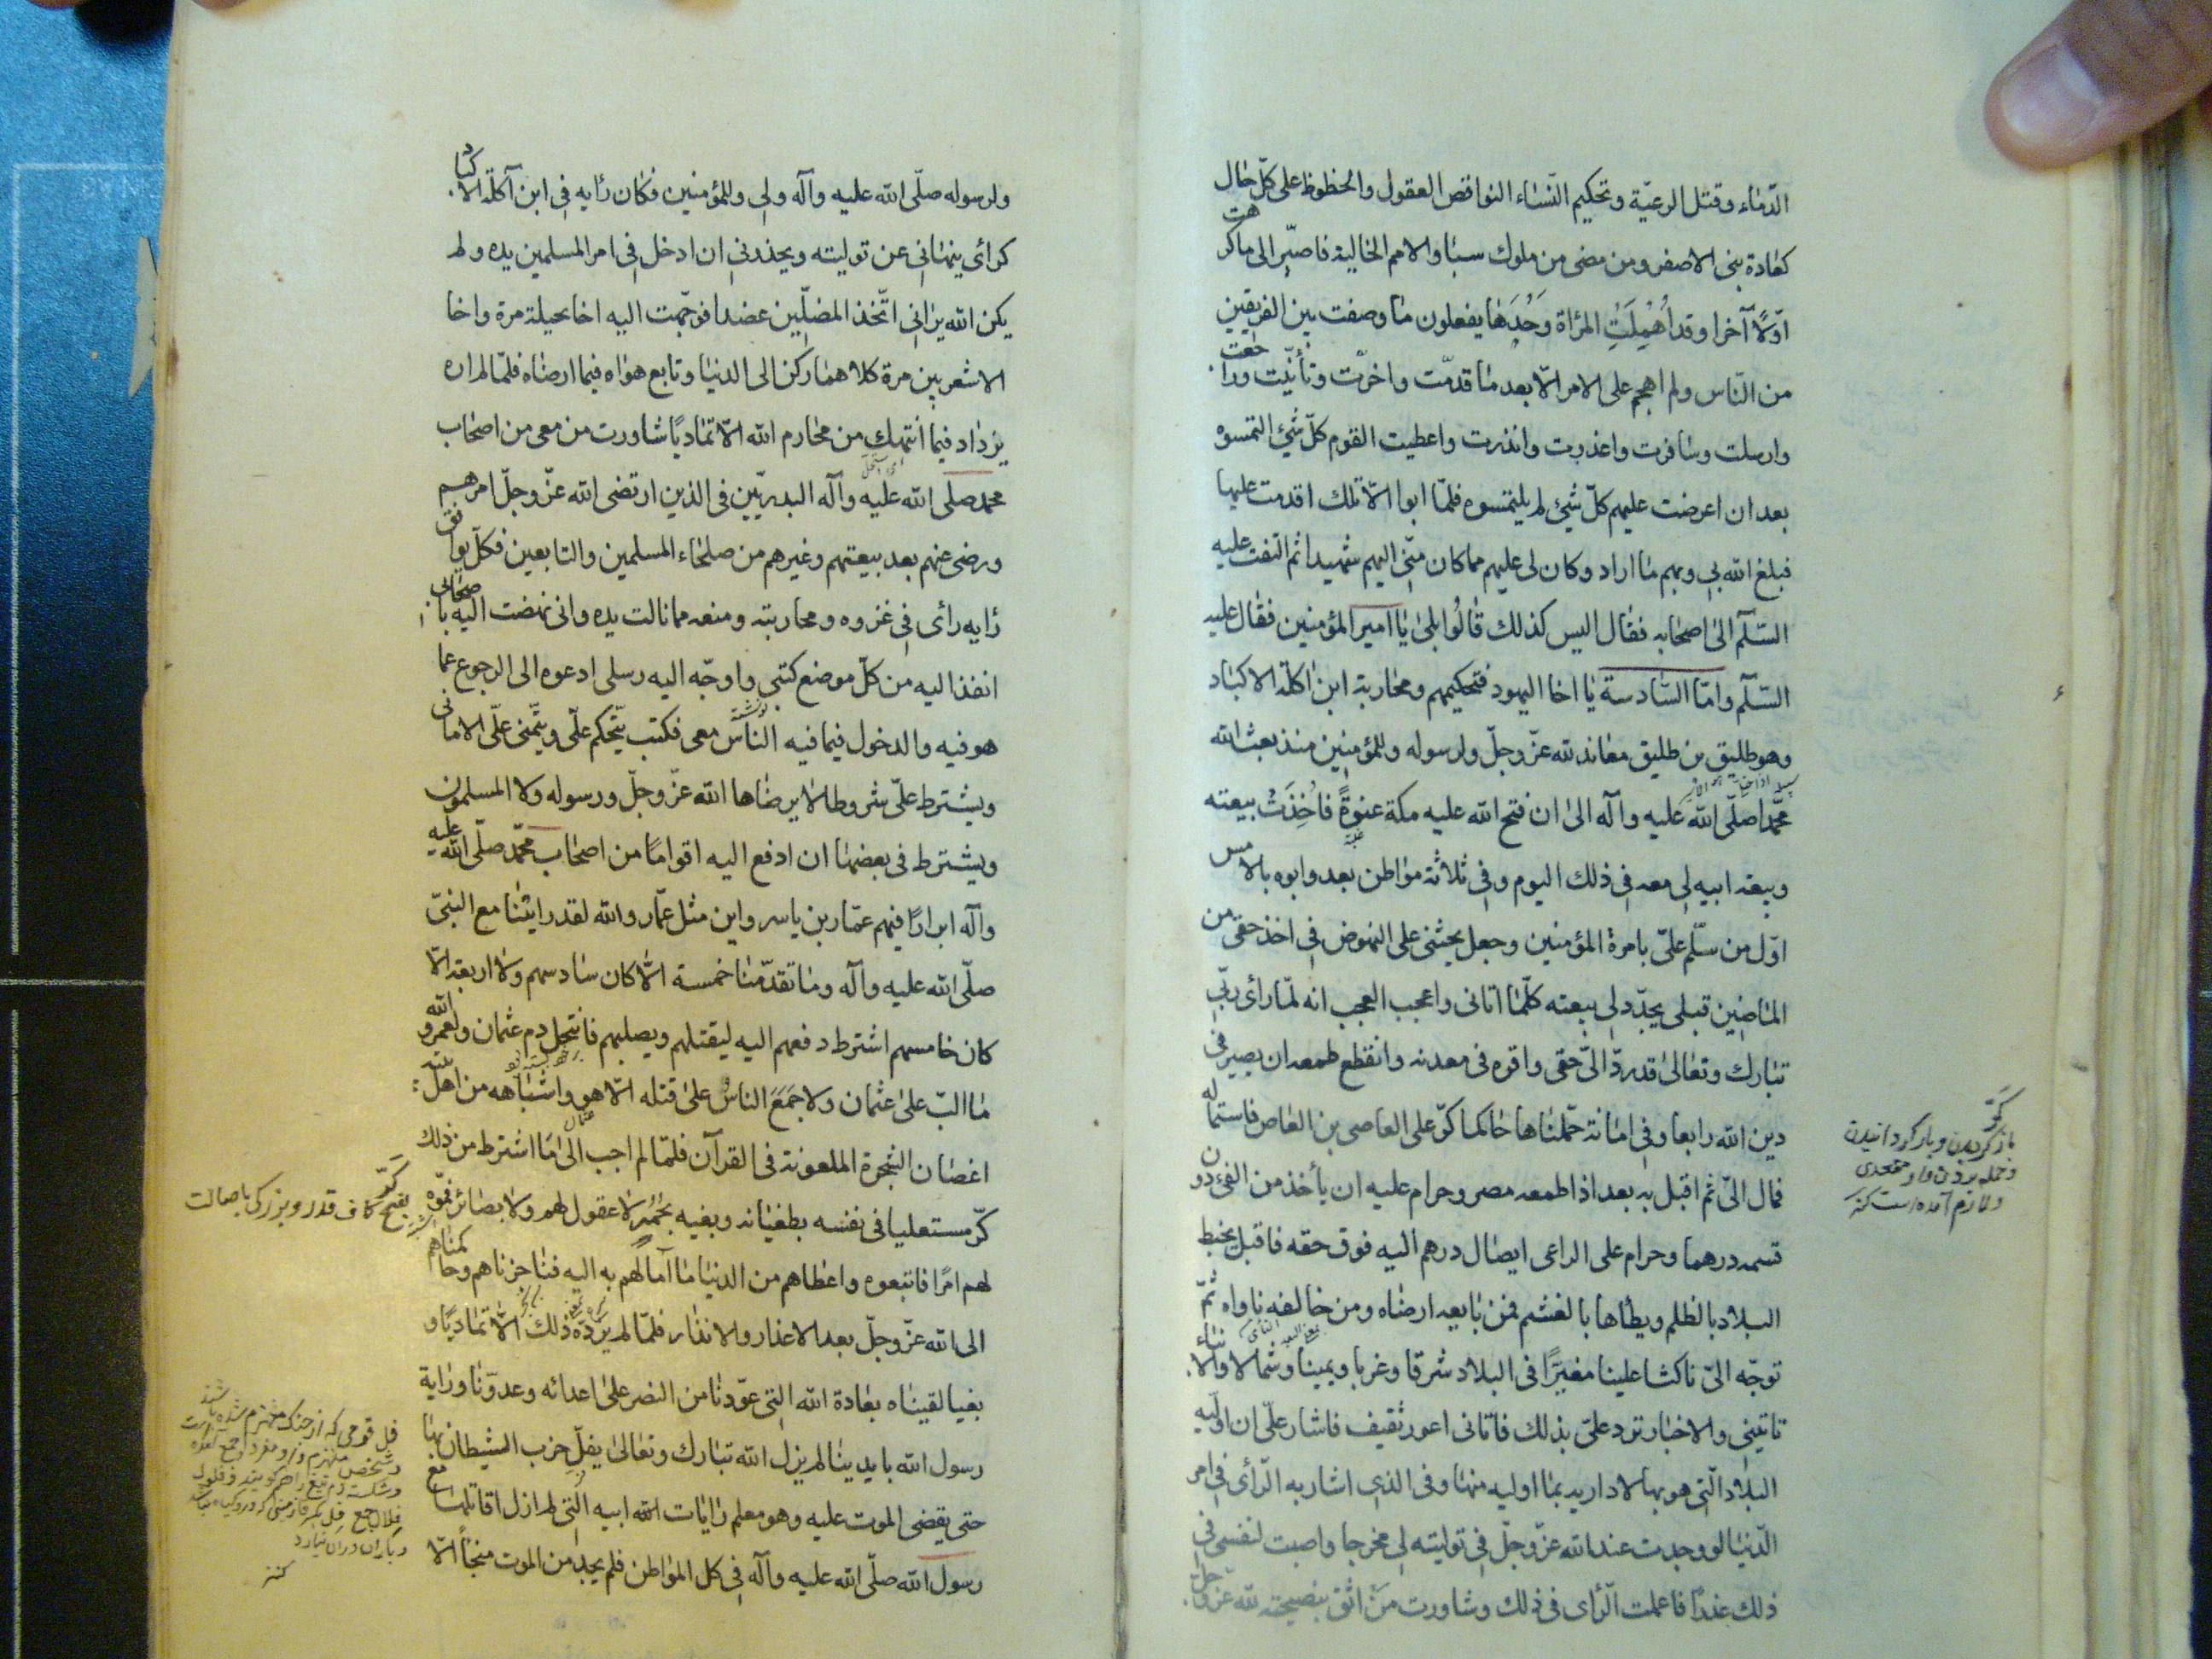 الدماء وقتل الرعيّة وتحكيم النّساء النواقص العقول والحظوظ على كلّ حال
كعادة بنى الاصفر ومن مضى من ملوك سبا والامم الخالية فاصير الى ما كرهت
اوّلاً آخرا وقد اُهْمِلَتِ المرأة وَجُندَها يفعلون ما وصفت بين الفريقين
من النّاس ولم اهجم على الامر الّا بعد ما قدمّت واخّرت وتأنّيت وراجعت
وارسلت وسافرت واعذرت وانذرت واعطيت القوم كلّ شئ التمسوه
بعد ان اعرضت عليهم كلّ شئ لم يلتمسوه فلمّا ابوا الّا تلك اقدمت عليها
فبلغ الله بى وبهم ما اراد وكان لى عليهم مما كان منّى اليهم شهيدا ثم التفت عليه
السّلم الى اصحابه فقال اليس كذلك قالُوا بلى يا امير المؤمنين فقال عليه
السّلم وامّا السّادسة يا اخا اليهود فتحكيمهم ومحاربة ابن اكلة الاكباد
وهو طليق بن طليق معاند لله عزّ وجلّ ولرسوله وللمؤمنين منذ بعث الله
محمّدا صلّى الله عليه وآله الى ان فتح الله عليه مكة عنوةً فاُخِذَتْ بيعته
وبيعة ابيه لى معه فى ذلك اليوم وفى ثلاثة مواطن بعد وابوه بالامس
اوّل من سلّم علىّ بامرة المؤمنين وجعل يحثنى على النهوض فى اخذ حقى من
الماضين قبلى يجدّد لى بيعته كلّما اتانى واعجب العجب انه لمّا رأى ربّى
تبارك وتعالى قد ردّ الىّ حقى واقره فى معدنه وانقطع طمعه ان يصير فى
دين الله رابعا وفى امانة حمّلناها حاكما كرّ على العاصى بن العاص فاستماله
فمال اليّ ثم اقبل به بعد اذ اطمعه مصر وحرام عليه ان يأخذ من الفئ دون
قسمه درهما وحرام على الراعى ايصال درهم اليه فوق حقه فاقبل يخبط
البلاد بالظلم ويطأها بالغشم فمن بايعه ارضاه ومن خالفه ناواه ثمّ
توجّه الىّ ناكثا علينا مغيرًا فى البلاد شرقا وغربا ويمينا وشمالا والانباء
تاتينى والاخبار ترد علىّ بذلك فاتانى اعور ثقيف فاشار علىّ ان اوليّه
البلاد الّتى هو بها لاداريه بما اوليه منها وفى الذى اشار به الرّأى فى امر
الدّنيا لو وجدت عند الله عزّ وجلّ فى توليته لى مخرجا واصبت لنفسى فى
ذلك عذرًا فاعملت الرّأى فى ذلك وشاورت مَنْ اثق بنصيحته لله عزّ وجلّ
كرّ
باز گردیدن و باز گردانیدن
ولازم آمده است كنز
ولرسوله صلّى الله عليه وآله ولى وللمؤمنين فكان رأيه فى ابن آكلة الاكباد
كرائى ينهانى عن توليته ويحذرنى ان ادخل فى امر المسلمين يده ولم
يكن الله يرانى اتّخذ المضلّين عضدا فوجّهت اليه اخا بجيلة مرة واخا
الاشعريين مرة كلاهما ركن الى الدنيا وتابع هواه فيما ارضاه فلمّا لم اره
يزداد فيما انتهك من محارم الله الّا تماديًا شاورت من معى من اصحاب
محمد صلى الله عليه وآله البدريّين فى الذين ارتضى الله عزّ وجلّ امرهم
ورضى عنهم بعد بيعتهم وغيرهم من صلحاء المسلمين والتابعين فكلّ يوافق
رأيه رأى فى غزوه ومحاربته ومنعه مما نالت يده وانى نهضت اليه باصحابى
انفذ اليه من كلّ موضع كتبى واوجّه اليه رسلى ادعوه الى الرجوع عما
هو فيه والدخول فيما فيه النّاس معى فكتب يتّحكم علّى ويتّمنى علّى الامانى
ويشترط علىّ شروطا لا يرضاها الله عزّ وجلّ ورسوله ولا المسلمون
ويشترط فى بعضها ان ادفع اليه اقوامًا من اصحاب محمّد صلّى الله عليه
وآله ابرارًا فيهم عمّار بن ياسر واين مثل عمّار والله لقد رايتنا مع النبىّ
صلّى الله عليه وآله وما تقدّمنا خمسة الّا كان سادسهم ولا اربعة الا
كان خامسهم اشترط دفعهم اليه ليقتلهم ويصلبهم فانتحل دم عثمان ولعمرو الله
ما البّ على عثمان ولا جَمَعَ الناسُ على قتله الّا هو واشباهه من اهل بيته
اغصان الشجرة الملعونة فى القرآن فلمّا لم اجب الى ما اشترط من ذلك
كرّ مستعليا فى نفسه بطغيانه وبغيه بحمير لا عقول لهم ولا بصائر فموّه
لهم امرًا فاتبعوه واعطاهم من الدنيا ما امالهم به اليه فناجزناهم وحاكمناهم
الى الله عزّ وجلّ بعد الاعذار والانذار فلمّا لم يزده ذلك الّا تماديًا و
بغيا لقيناه بعادة الله التى عوّدنا من النصر على اعدائه وعدوّنا وراية
رسول الله بايدينا لم يزل الله تبارك وتعالى يفلّ حزب الشيطان بها
حتى يقضى الموت عليه وهو معلم رايات ابيه التى لم ازل اقاتلها مع
رسول الله صلّى الله عليه وآله فى كل المواطن فلم يجد من الموت منجًا الّا
كَرّ
بفتح كاف قدر وبزرگى باصالت
فل قومى كه از جنگ منهزم شده باشند
كنز